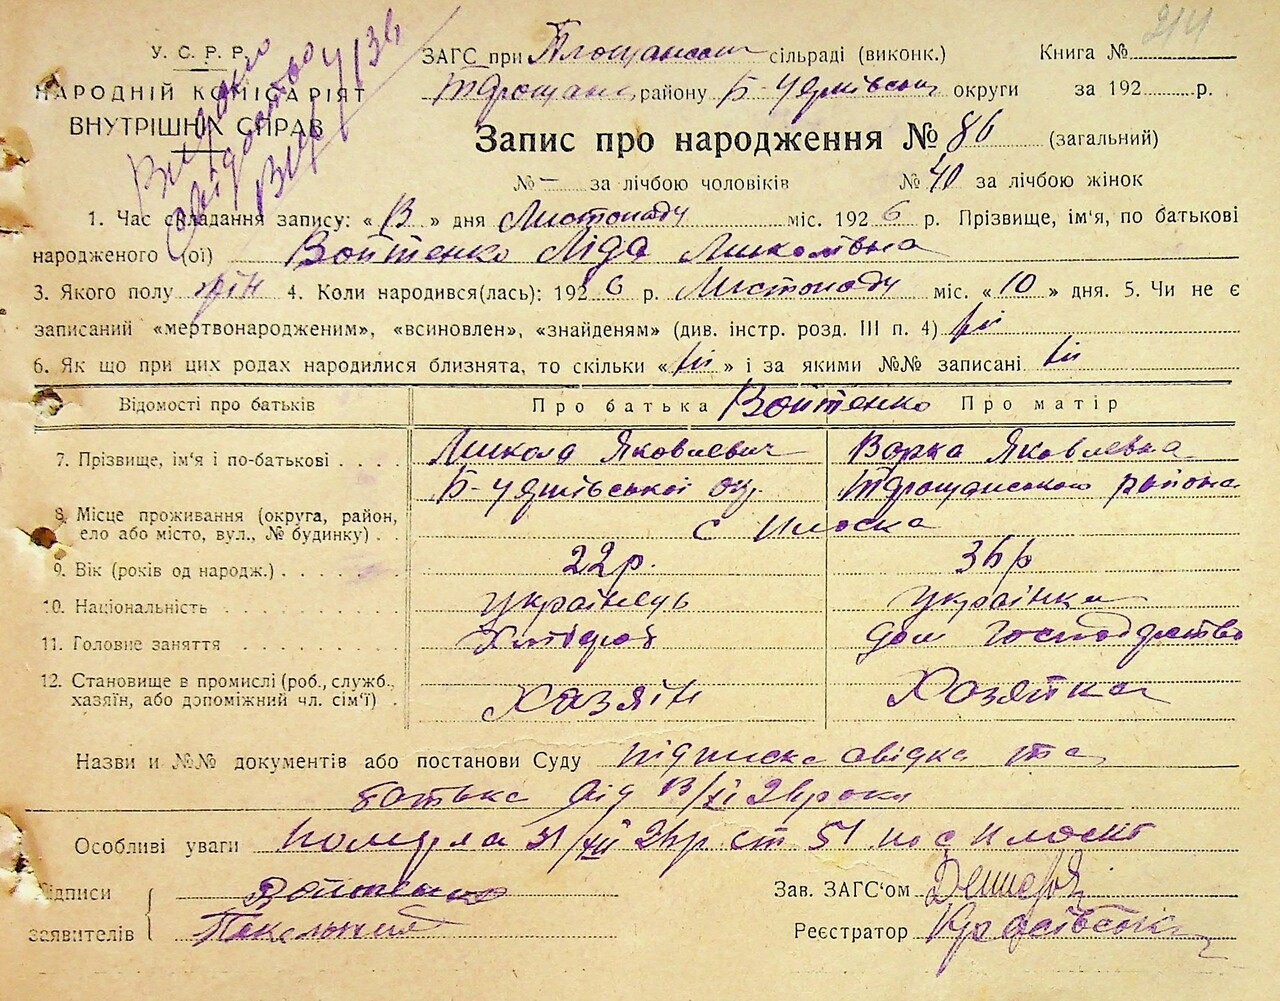 У. С. Р. Р.
НАРОДНІЙ КОМІСАРІЯТ
ВНУТРІШНІХ СПРАВ
Видано
свідоцтво
ЗАГС при Площанском сільраді (виконк.)
Книга № 214
района Б-Церківськ округи за 192 р.
Запис про народження № 86 (загальний)
№ — за лічбою чоловіків № 40 за лічбою жінок
1. Час складання запису: « 13 » дня Листопаду міс. 192 6 р. Прізвище, ім'я, по батькові
народженого (ої) Войтенко Ліда Миколівна
3. Якого полу жін 4. Коли народився(лась): 192 6 р. Листопаду міс. « 10 » дня. 5. Чи не є
записаний «мертвонародженим», «всиновлен», «знайденям» (див. інстр. розд. III п. 4) Ні
6. Як що при цих родах народилися близнята, то скільки « Ні » і за якими №№ записані Ні
Відомості про батьків Про батька Войтенко Про матір
7. Прізвище, ім'я і по-батькові . . . . Микола Яковлевич Варка Яковлевна
Б-Церківської окр.
8. Місце проживання (округа, район, село або місто, вул., № будинку) . . с Плоска
9. Вік (років од народж.) . . . . 22р. 36р
10. Національність Українець Українка
11. Головне заняття Хлібороб дом Господарство
12. Становище в промислі (роб., служб., хазяїн, або допоміжний чл. сім'ї) . Хазяїн Хозяйка
Назви и №№ документів або постанови Суду підписка свідка та
батька від 13/XI 26 року
Особливі уваги Померла 31/XII 26р ст 51 по с Плоске
Підписи Войтенко Зав. ЗАГС'ом
заявителів Реєстратор